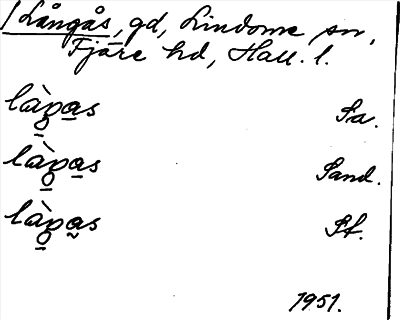 Långås, gd, Lindome sn,
Fjäre hd, Hall. l.
làŋa̲s Sa.
làŋa̲s Sand.
làŋa̰s St.
1951.